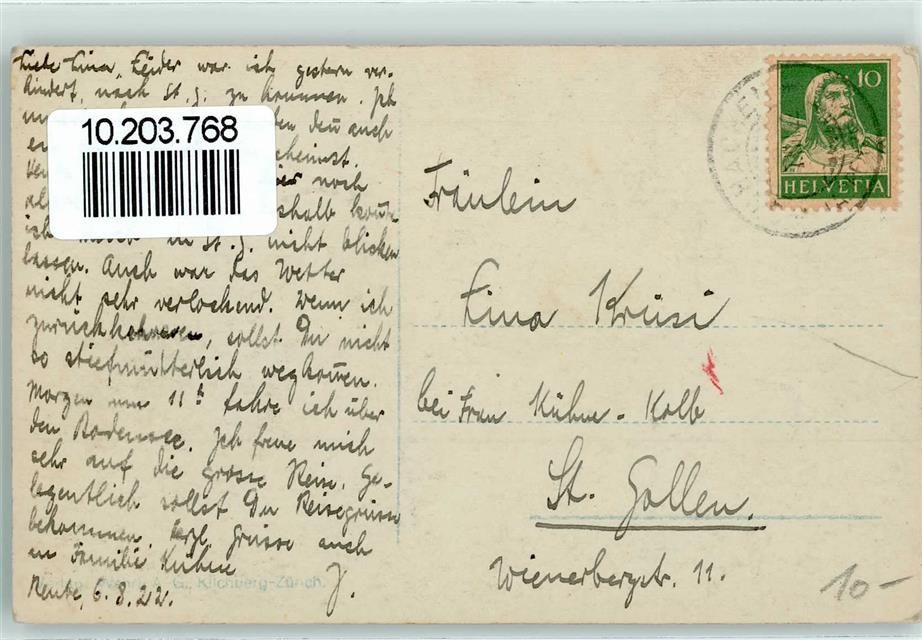 Liebe Lina, Leider war ich gestern ver-
hindert, nach St. G. zu kommen. Ich
den auch
noch
ich in St. G. nicht blicken
lassen. Auch war das Wetter
nicht sehr verlockend. Wenn ich
sollst Du nicht
so stiefmütterlich wegkom̅en.
Morgen um 11h fahre ich über
den Bodensee. Ich freue mich
sehr auf die grosse Reise. Ge-
legentlich sollst Du Reisegrüsse
bekommen. Herzl. Grüsse auch
an Familie Kühne
J.
Reute, 6. 8. 22.
10.203.768
10
HELVETIA
Fräulein
Lina Krüsi
bei Frau Kühne-Kolb
St. Gallen.
Wienerbergstr. 11.
10-
A. G., Kilchberg-Zürich.